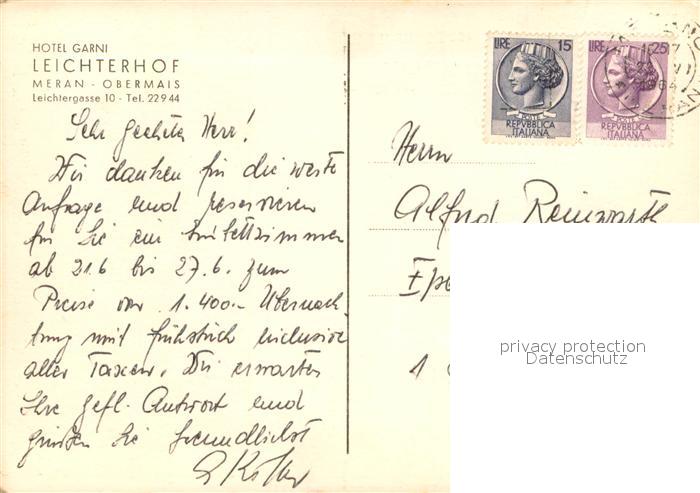 HOTEL GARNI
LEICHTERHOF
MERAN - OBERMAIS
Leichtergasse 10 - Tel. 22944
Sehr geehrter Herr!
Wir danken für die werte
Anfrage und reservieren
für Sie ein Einbettzimmer
ab 21.6 bis 27.6. zum
Preise von 1.400.- Übernach-
tung mit Frühstück inclusive
aller Taxen. Wir erwarten
Ihre gefl. Antwort und
grüßen Sie freundlichst
LIRE 15
POSTE
REPVBBLICA
ITALIANA
LIRE 25
POSTE
REPVBBLICA
ITALIANA
1964
Herrn
Alfred Reinwarth
privacy protection
Datenschutz
1